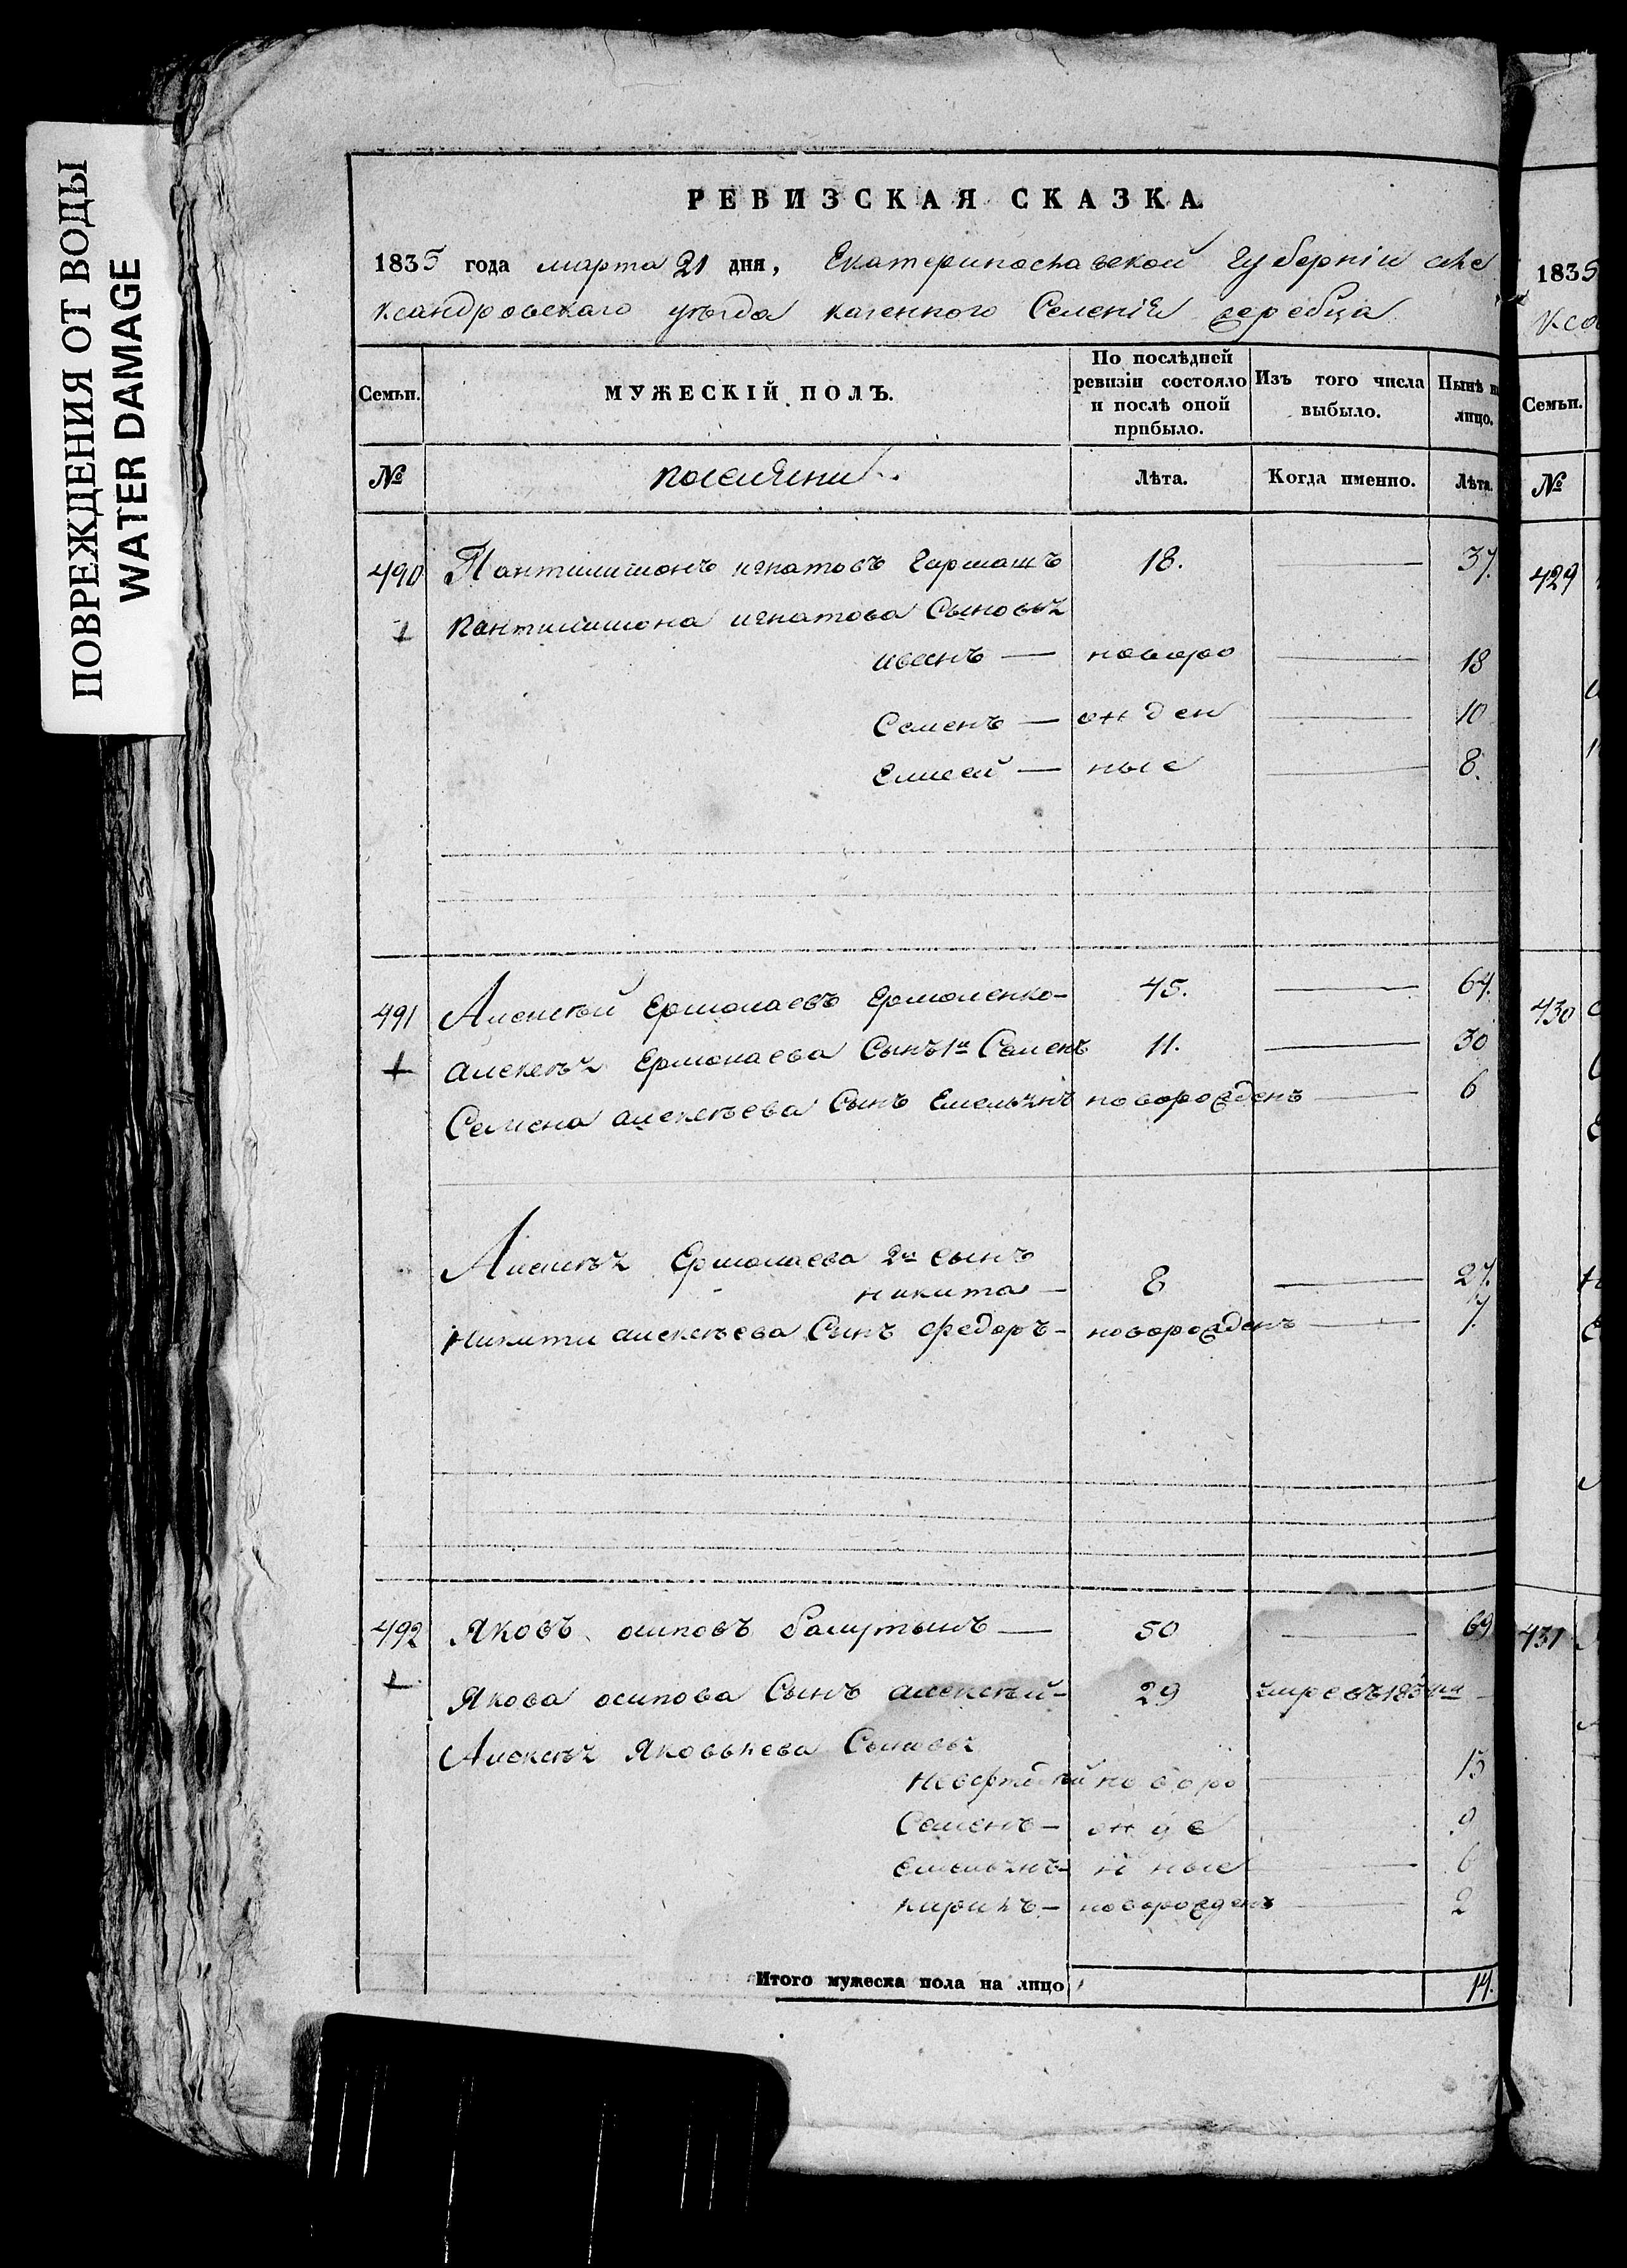 ПОВРЕЖДЕНИЯ ОТ ВОДЫ
WATER DAMAGE
РЕВИЗСКАЯ СКАЗКА.
1835 года марта 21 дня, Екатеринославской Губерніи але
ксандровскаго уѣзда казенного Селенія жеребца
Семьи. МУЖЕСКІЙ ПОЛЪ. По послѣдней ревизіи состояло и послѣ оной прибыло. Изъ того числа выбыло. Нынѣ на лицо.
№ поселяни Лѣта. Когда именно. Лѣта.
490 Пантилимонъ игнатовъ Гармашъ 18. — 37.
Пантилимона игнатова Сыновья
иванъ — новоро — 18
Семенъ — жден — 10
Елисей — ные — 8.
491 Алексѣй Ермолаевъ Ермоленко — 45. — 64.
алексѣя Ермолаева Сынъ 1й Семенъ 11. — 30
Семена алексѣева Сынъ Емельянъ новорожденъ — 6
Алексѣя Ермолаева 2й сынъ
никита — 8 — 27.
Никити алексѣева Сынъ федоръ — новорожденъ — 7.
492 Яковъ осиповъ — 50 — 69
Якова осипова Сынъ алексѣй — 29 умре въ 1834м
Алексѣя Яковлева Сыновья
новоро — 15
Семенъ — жде — 9
емельянъ — нные — 6
кирилъ — новорожденъ — 2
Итого мужеска пола на лицо 14.
1835
Ксан
Семьи.
№
429
430
431